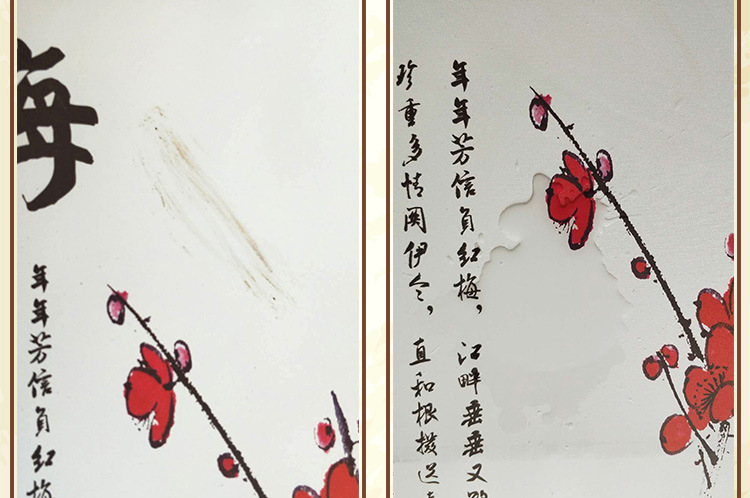 年年芳信負紅梅
年年芳信負紅梅，江畔垂垂又
珍重多情關伊令，直和根撥送